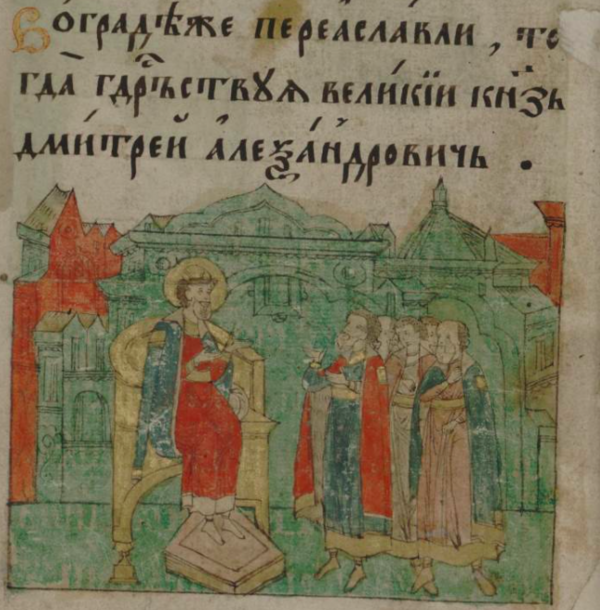 Во градѣже переѧславли, то
гда̀ гдⷭ҇рьствуѧ вели́кїи кн҃зь
дми́трей а̓леѯа́ндровичь .